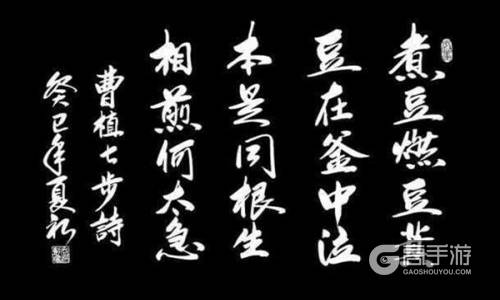 煮豆燃豆萁
豆在釜中泣
本是同根生
相煎何太急
曹植七步詩
癸巳年夏
高手游
GAOSHOUYOU.COM